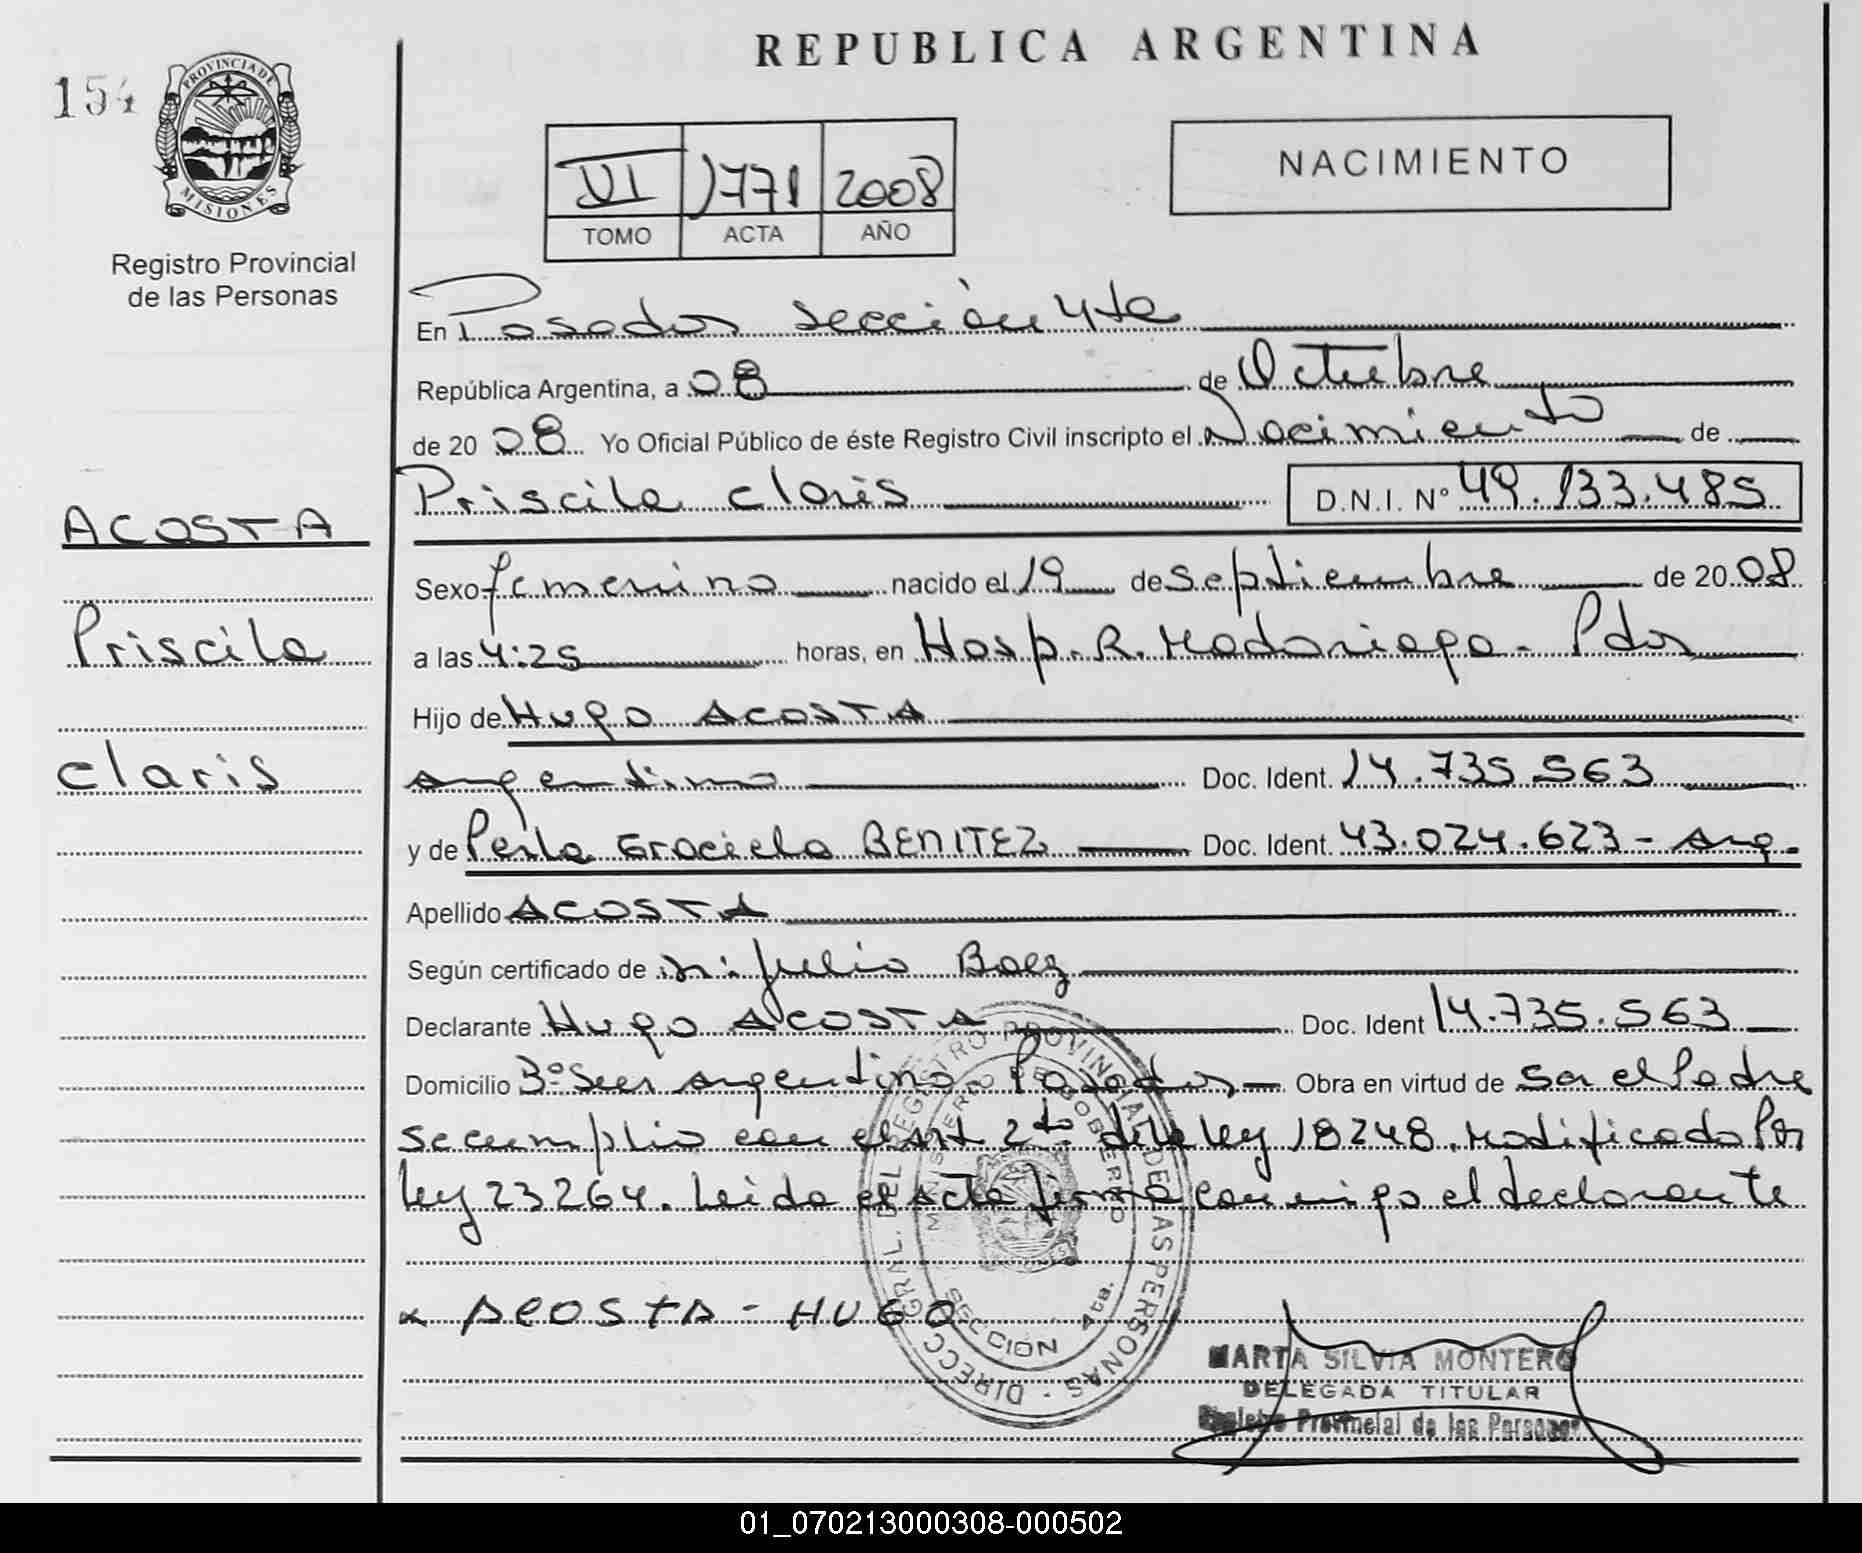 154
PROVINCIA DE
MISIONES
Registro Provincial
de las Personas
REPUBLICA ARGENTINA
VI 1771 2008
TOMO ACTA AÑO
NACIMIENTO
En Posadas Sección 4ta
República Argentina, a 08 de Octubre
de 20 08 Yo Oficial Público de éste Registro Civil inscripto el Nacimiento de
Priscila Claris D.N.I. N° 49.133.485
ACOSTA
Priscila
Claris
Sexo femenino nacido el 19 de Septiembre de 20 08
a las 4:25 horas, en Hosp. R. Madariaga - Pdas
Hijo de Hugo ACOSTA
argentino Doc. Ident. 14.735.563
y de Perla Graciela BENITEZ Doc. Ident. 43.024.623 - Arg.
Apellido ACOSTA
Según certificado de Julio Baez
Declarante Hugo ACOSTA Doc. Ident 14.735.563
Domicilio 3° Argentino Posadas Obra en virtud de Ser el Padre
se cumplio con el art 2do de la ley 18248. Modificado Por
ley 23264. Leida el acta firma conmigo el declarante
x ACOSTA - HUGO
DIRECC. GRAL. DEL REGISTRO PROVINCIAL DE LAS PERSONAS
MINISTERIO DE GOBIERNO
SECCIÓN 4ta.
MARTA SILVIA MONTERO
DELEGADA TITULAR
Registro Provincial de las Personas
01_070213000308-000502